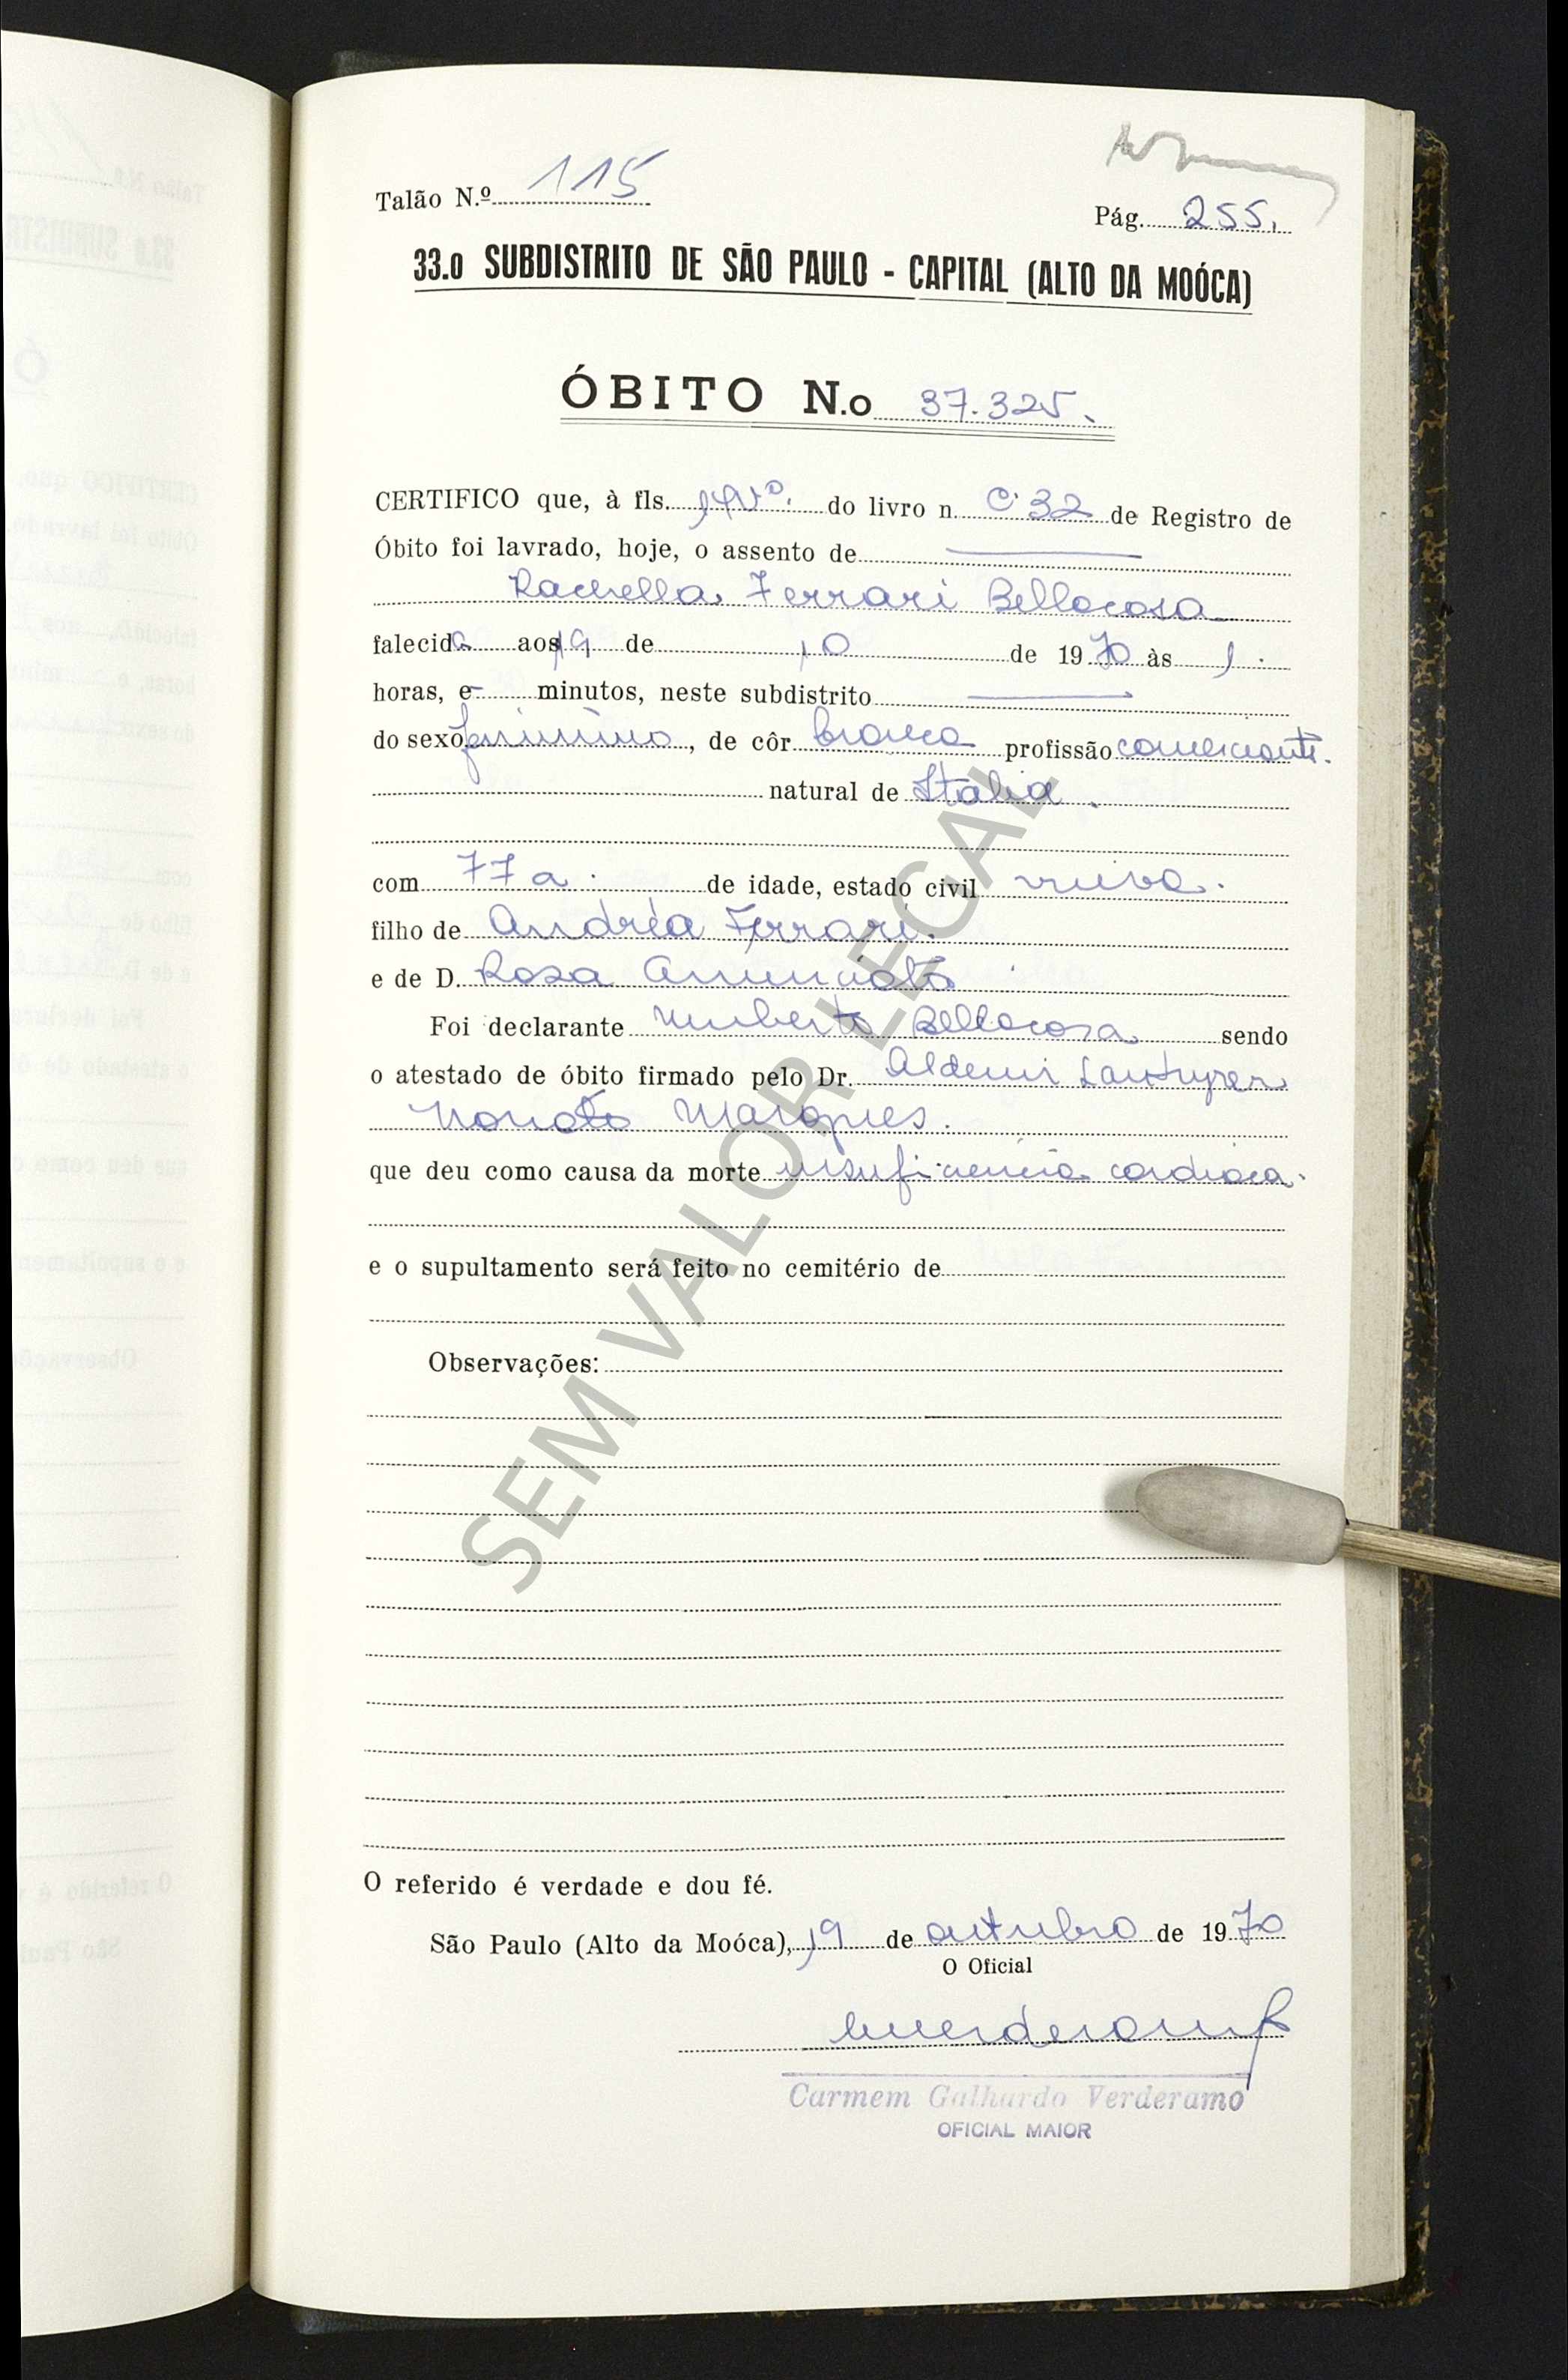 Talão N.º 115
Pág. 255.
33.o SUBDISTRITO DE SÃO PAULO - CAPITAL (ALTO DA MOÓCA)
ÓBITO N.o 37.325.
CERTIFICO que, à fls. do livro n. C 32 de Registro de
Óbito foi lavrado, hoje, o assento de
Rachella Ferrari Bellocosa
falecida aos 19 de 10 de 1970 às 1.
horas, e - minutos, neste subdistrito
do sexo feminino, de côr branca profissão comerciante.
natural de Italia.
com 77 a. de idade, estado civil viuva.
filho de Andréa Ferrari.
e de D. Rosa Anunciata
Foi declarante Umberto Bellocosa sendo
o atestado de óbito firmado pelo Dr. Aldemir
Nonato Marques.
que deu como causa da morte insuficiencia cardiaca.
e o supultamento será feito no cemitério de
Observações:
O referido é verdade e dou fé.
São Paulo (Alto da Moóca), 19 de outubro de 1970
O Oficial
Carmem Galhardo Verderamo
OFICIAL MAIOR
SEM VALOR LEGAL